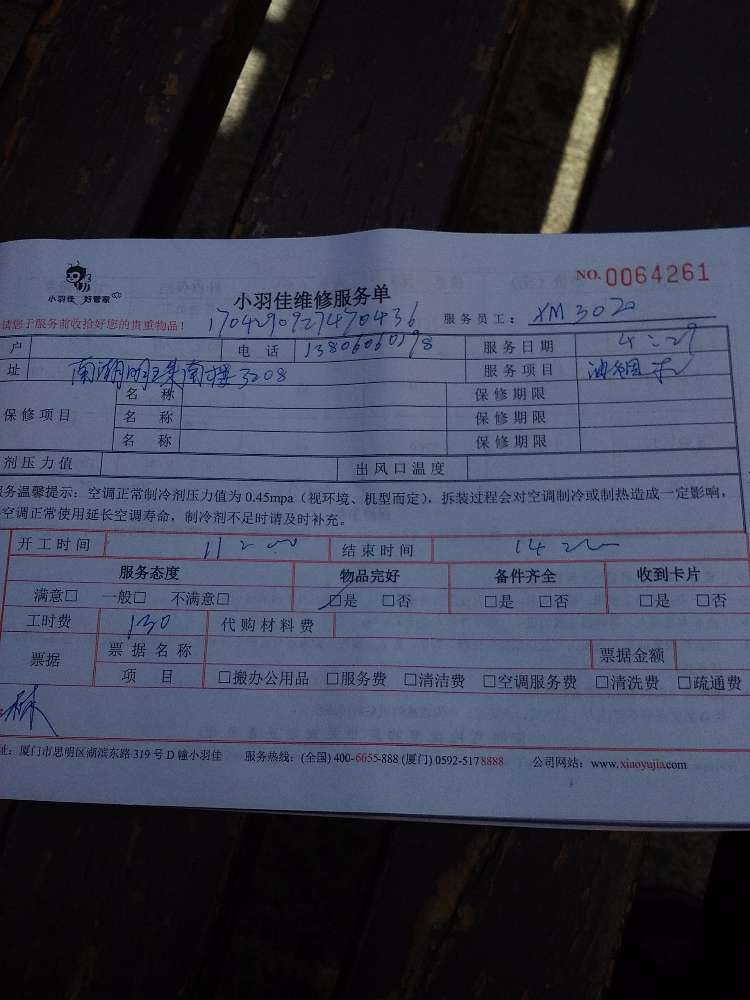 小羽佳 好管家
NO.0064261
小羽佳维修服务单
请您于服务前收拾好您的贵重物品! 1704290927470436 服务员工: XM3020
户 电话 13806060198 服务日期 4:29
址 南湖明珠南楼3208 服务项目
保修项目 名称 保修期限
名称 保修期限
名称 保修期限
剂压力值 出风口温度
服务温馨提示:空调正常制冷剂压力值为 0.45mpa(视环境、机型而定),拆装过程会对空调制冷或制热造成一定影响,
空调正常使用延长空调寿命,制冷剂不足时请及时补充。
开工时间 11:00 结束时间 14:
服务态度 物品完好 备件齐全 收到卡片
满意□ 一般□ 不满意□ □是 □否 □是 □否 □是 □否
工时费 130 代购材料费
票据 票据名称 票据金额
项目 □搬办公用品 □服务费 □清洁费 □空调服务费 □清洗费 □疏通费
林
址:厦门市思明区湖滨东路 319 号 D 幢小羽佳 服务热线:(全国) 400-6655-888 (厦门) 0592-5178888 公司网站:www.xiaoyujia.com